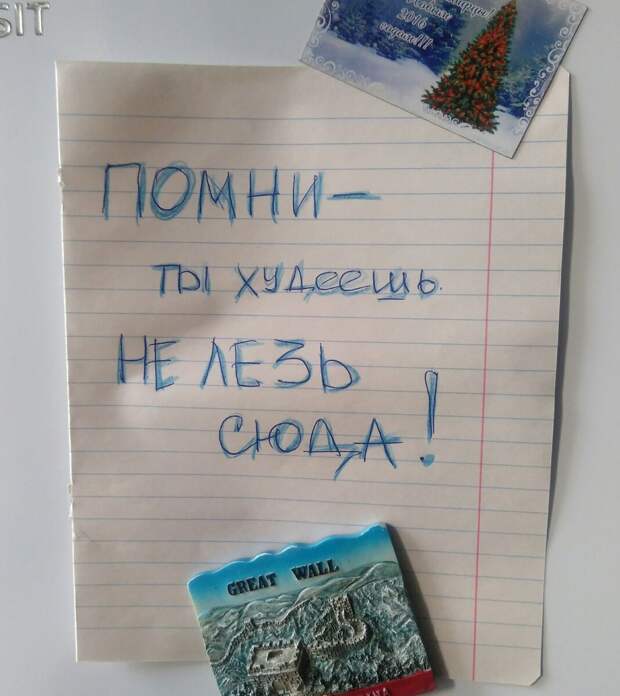 2016
ПОМНИ—
ТЫ ХУДЕЕШЬ.
НЕ ЛЕЗЬ
СЮДА!
GREAT WALL